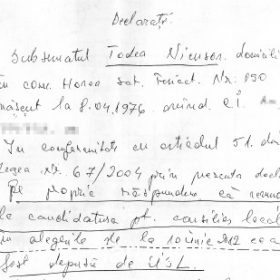 Declarație
Subsemnatul Todea Nicusor domicili
în com. Horea sat. Nr. 890
născut la 8.04.1976 având C.I.
În conformitate cu articolul 51. din
Legea Nr. 67/2004 prin prezenta decl
Pe proprie răspundere că renunț
la candidatura pt. consiliu local
în alegerile de la 10 iunie 2012 ce a
fost depusă de USL.